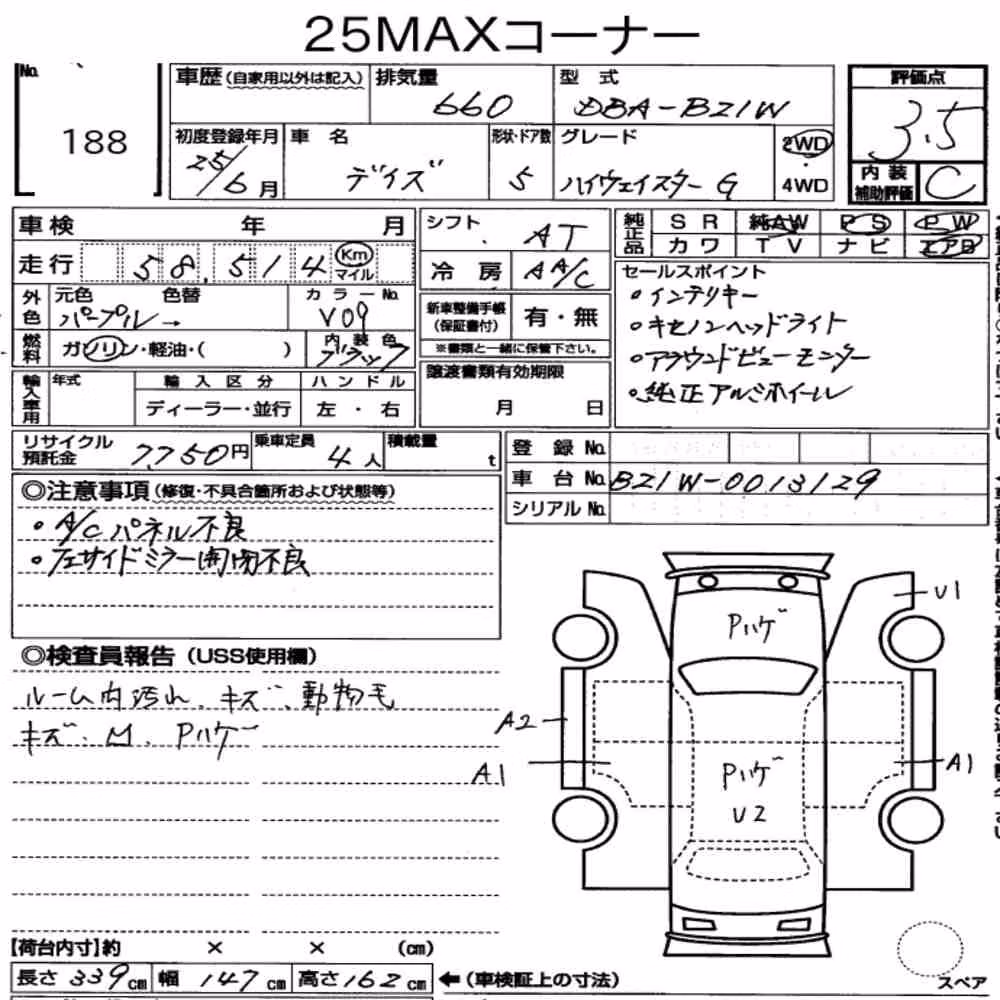 25MAXコーナー
No.
188
車歴 (自家用以外は記入)
排気量
660
型式
DBA-B21W
評価点
3.5
初度登録年月
25/6月
車名
デイズ
形状・ドア数
5
グレード
ハイウェイスターG
2WD
・
4WD
内装
補助評価
C
車検 年 月
走行 58,514 Km マイル
外色
元色 色替
パープル→
カラーNo.
V09
燃料
ガソリン・軽油・( )
内装色
ブラック
輸入車用
年式
輸入区分
ディーラー・並行
ハンドル
左・右
シフト
AT
冷房
AA/C
新車整備手帳
(保証書付)
有・無
※書類と一緒に保管下さい。
譲渡書類有効期限
月 日
純正品
SR 純AW PS PW
カワ TV ナビ エアB
セールスポイント
・インテリキー
・キセノンヘッドライト
・アラウンドビューモニター
・純正アルミホイール
リサイクル
預託金
7750円
乗車定員
4人
積載量
t
登録No.
車台No. B21W-0013129
シリアルNo.
◎注意事項(修復・不具合箇所および状態等)
・A/Cパネル不良
・左サイドミラー開閉不良
◎検査員報告(USS使用欄)
ルーム内汚れ、キズ、動物毛
キズ、凹、Pハゲ
Pハゲ
U1
A2
A1
Pハゲ
U2
A1
【荷台内寸】約 × × (cm)
長さ 339cm 幅 147cm 高さ 162cm ←(車検証上の寸法)
スペア